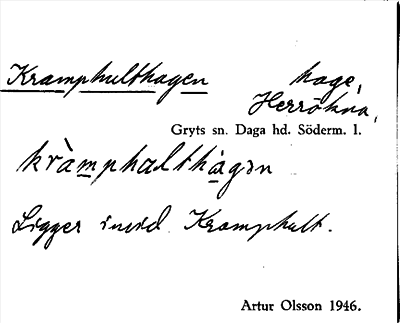 Kramphulthagen hage,
Herrökna,
Gryts sn. Daga hd. Söderm. l.
kràmphalthágən
Ligger invid Kramphult.
Artur Olsson 1946.